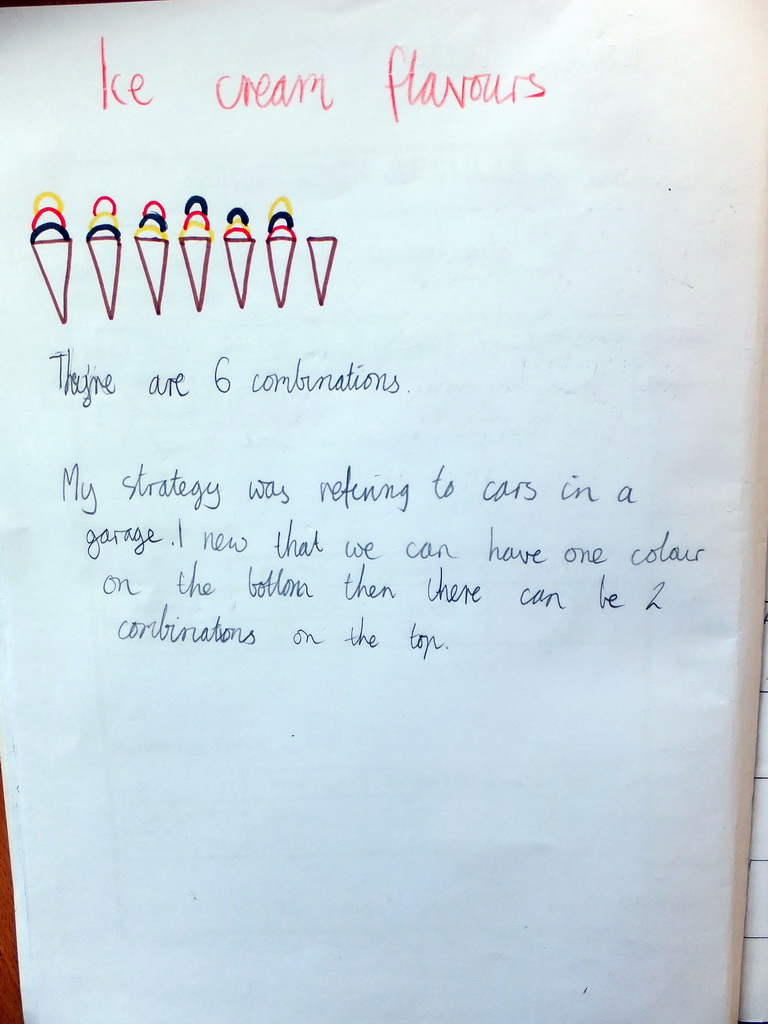 Ice cream flavours
They're are 6 combinations.
My strategy was refering to cars in a
garage. I new that we can have one colour
on the bottom then there can be 2
combinations on the top.